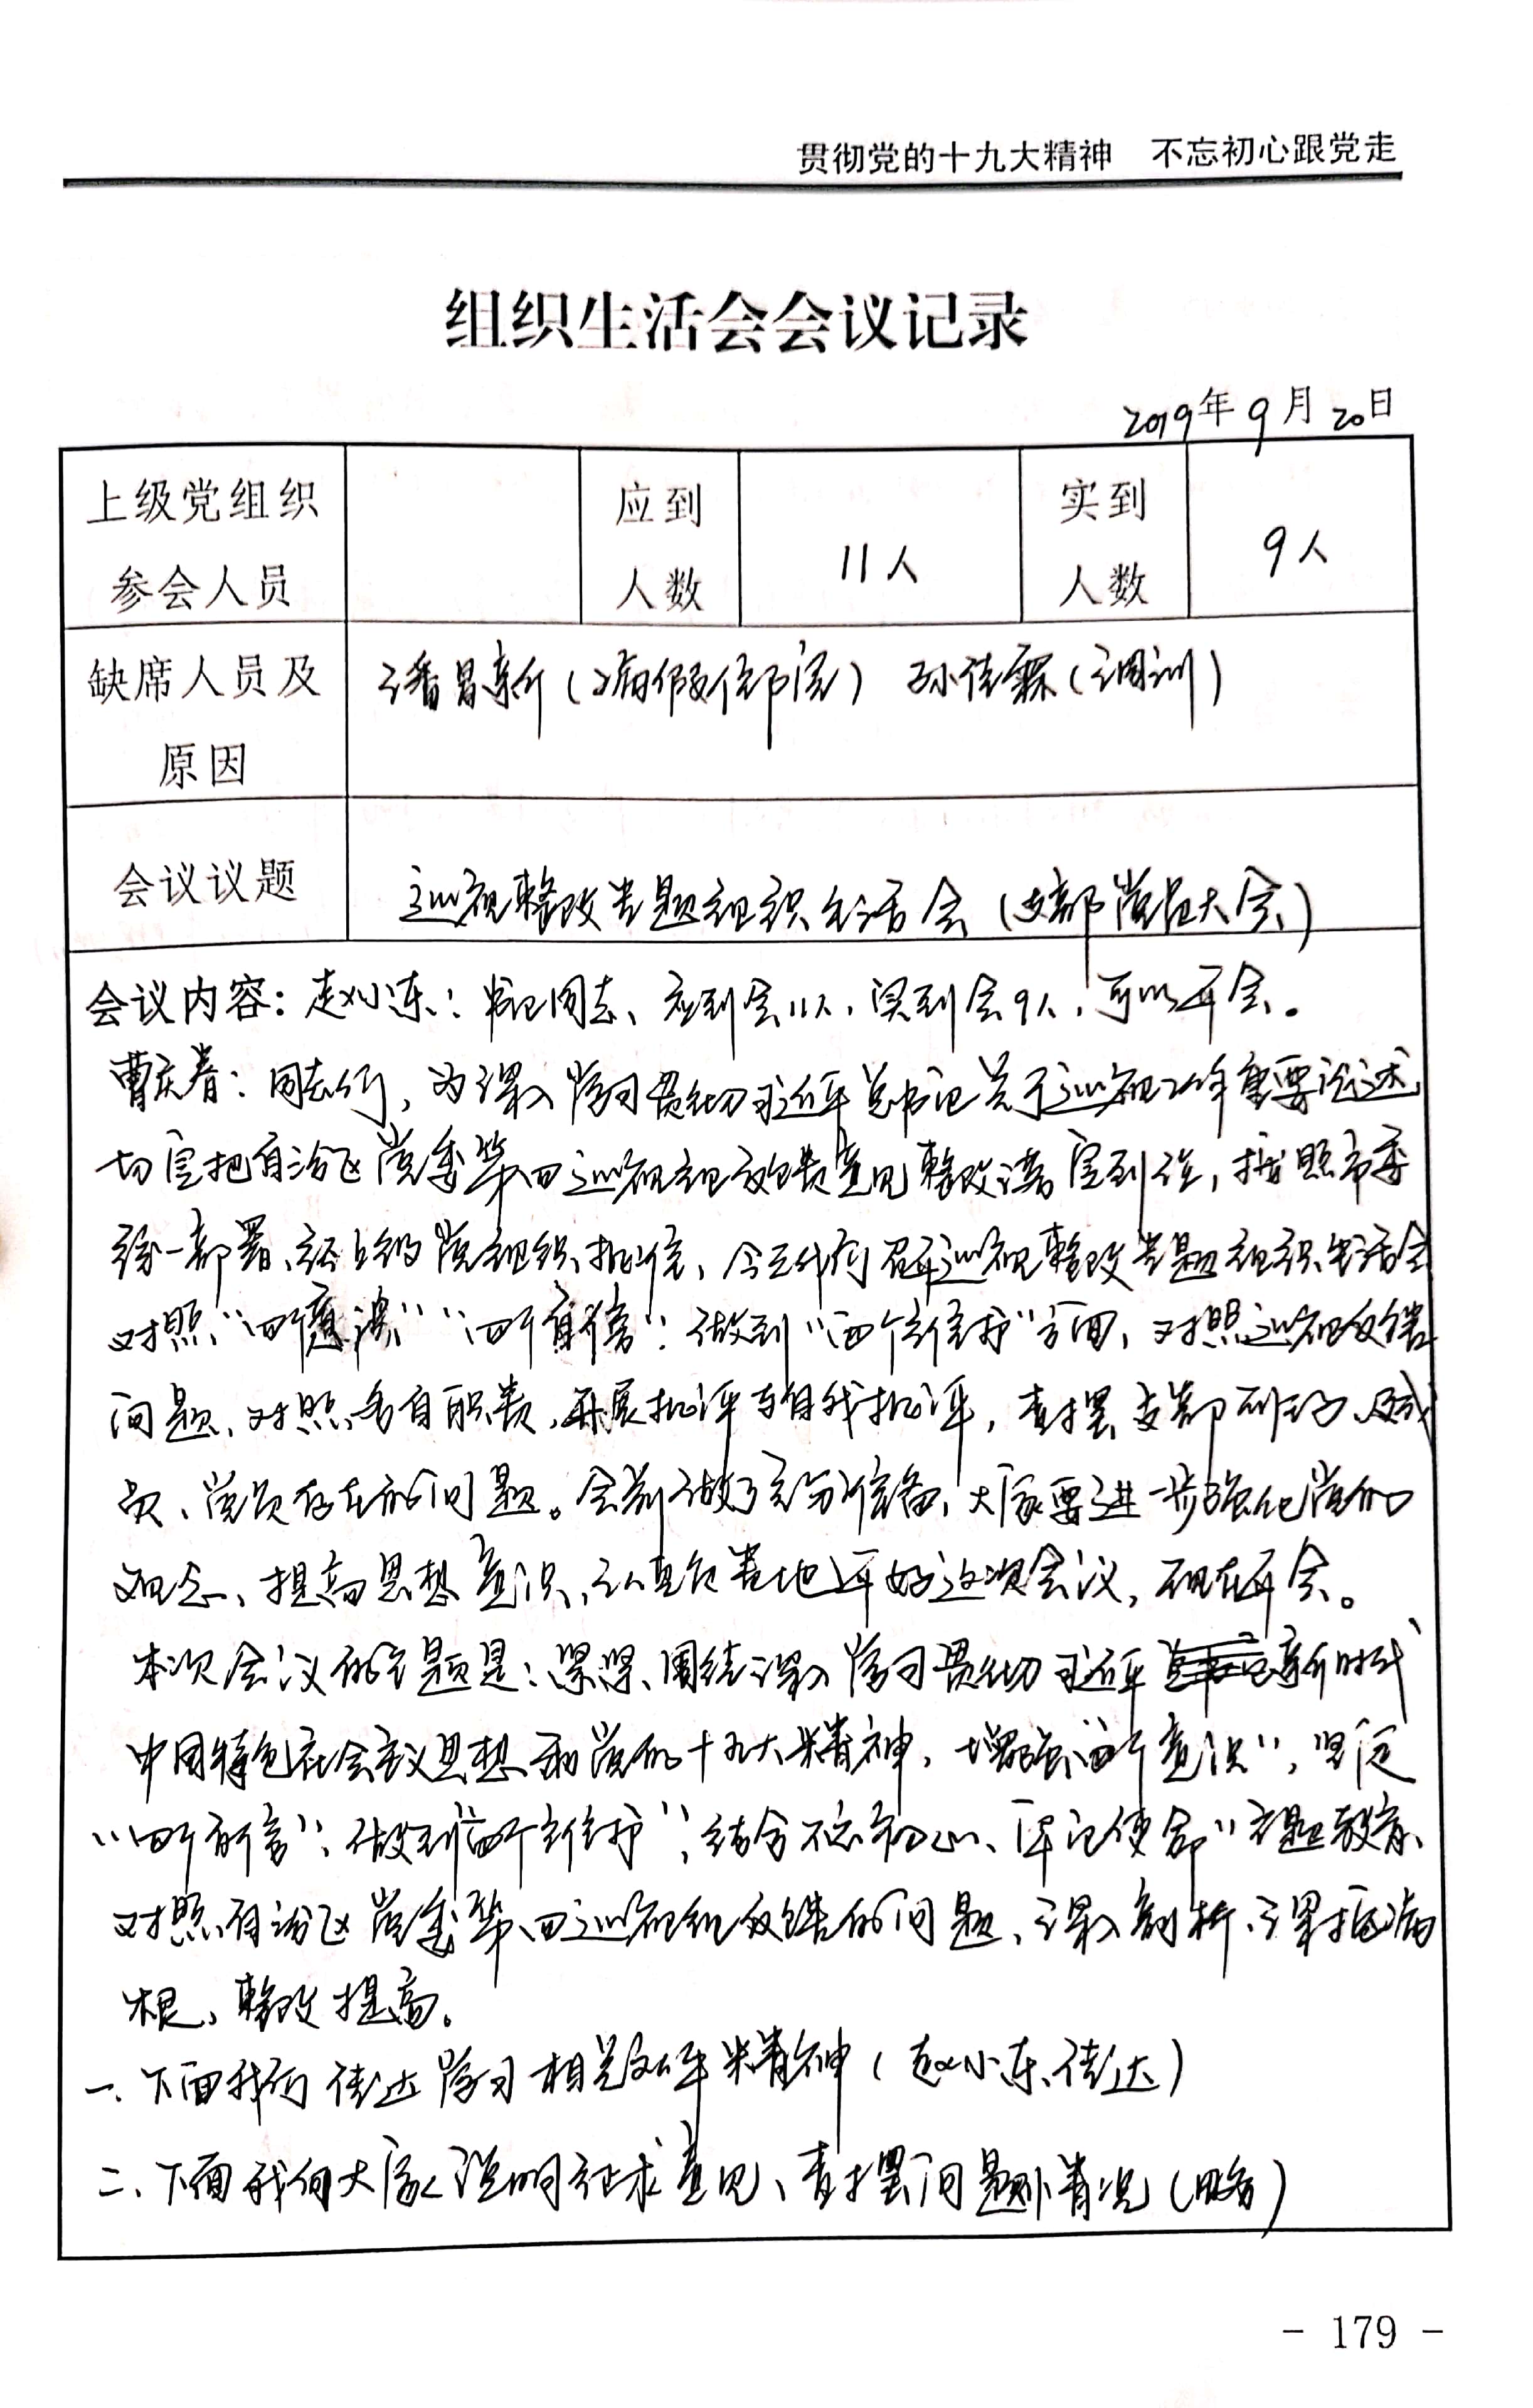 贯彻党的十九大精神 不忘初心跟党走
组织生活会会议记录
2019年9月20日
上级党组织
参会人员
应到
人数
11人
实到
人数
9人
缺席人员及
原因
潘昌新(病假住院) 孙佳霖(调训)
会议议题
巡视整改专题组织生活会(支部党员大会)
会议内容: 赵小东:书记同志、应到会11人,实到会9人,可以开会。
曹庆春:同志们,为深入学习贯彻习近平总书记关于巡视工作重要论述,
切实把自治区党委第四巡视组反馈意见整改落实到位,按照市委
统一部署、经上级党组织批准、今天我们召开巡视整改专题组织生活会
对照“四个意识”“四个自信”:做到“两个维护”方面,对照巡视反馈
问题、对照各自职责、开展批评与自我批评,查摆支部班子、成
员、党员存在的问题。会前做了充分准备,大家要进一步强化党的
观念、提高思想意识、认真负责地开好这次会议,现在开会。
本次会议的主题是:紧紧围绕深入学习贯彻习近平新时代
中国特色社会主义思想和党的十九大精神,增强“四个意识”,坚定
“四个自信”、做到“两个维护”,结合不忘初心、牢记使命”主题教育、
对照自治区党委第四巡视组反馈的问题、深入剖析、深挖病
根、整改提高。
一、下面我们传达学习相关文件精神(赵小东传达)
二、下面我向大家说明征求意见、查摆问题情况(略)
- 179 -